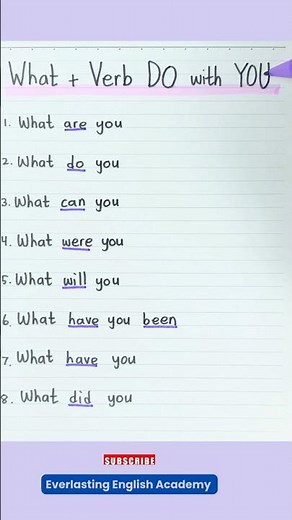 What + Verb DO with YOU
1. What are you
2. What do you
3. What can you
4. What were you
5. What will you
6. What have you been
7. What have you
8. What did you
SUBSCRIBE
Everlasting English Academy